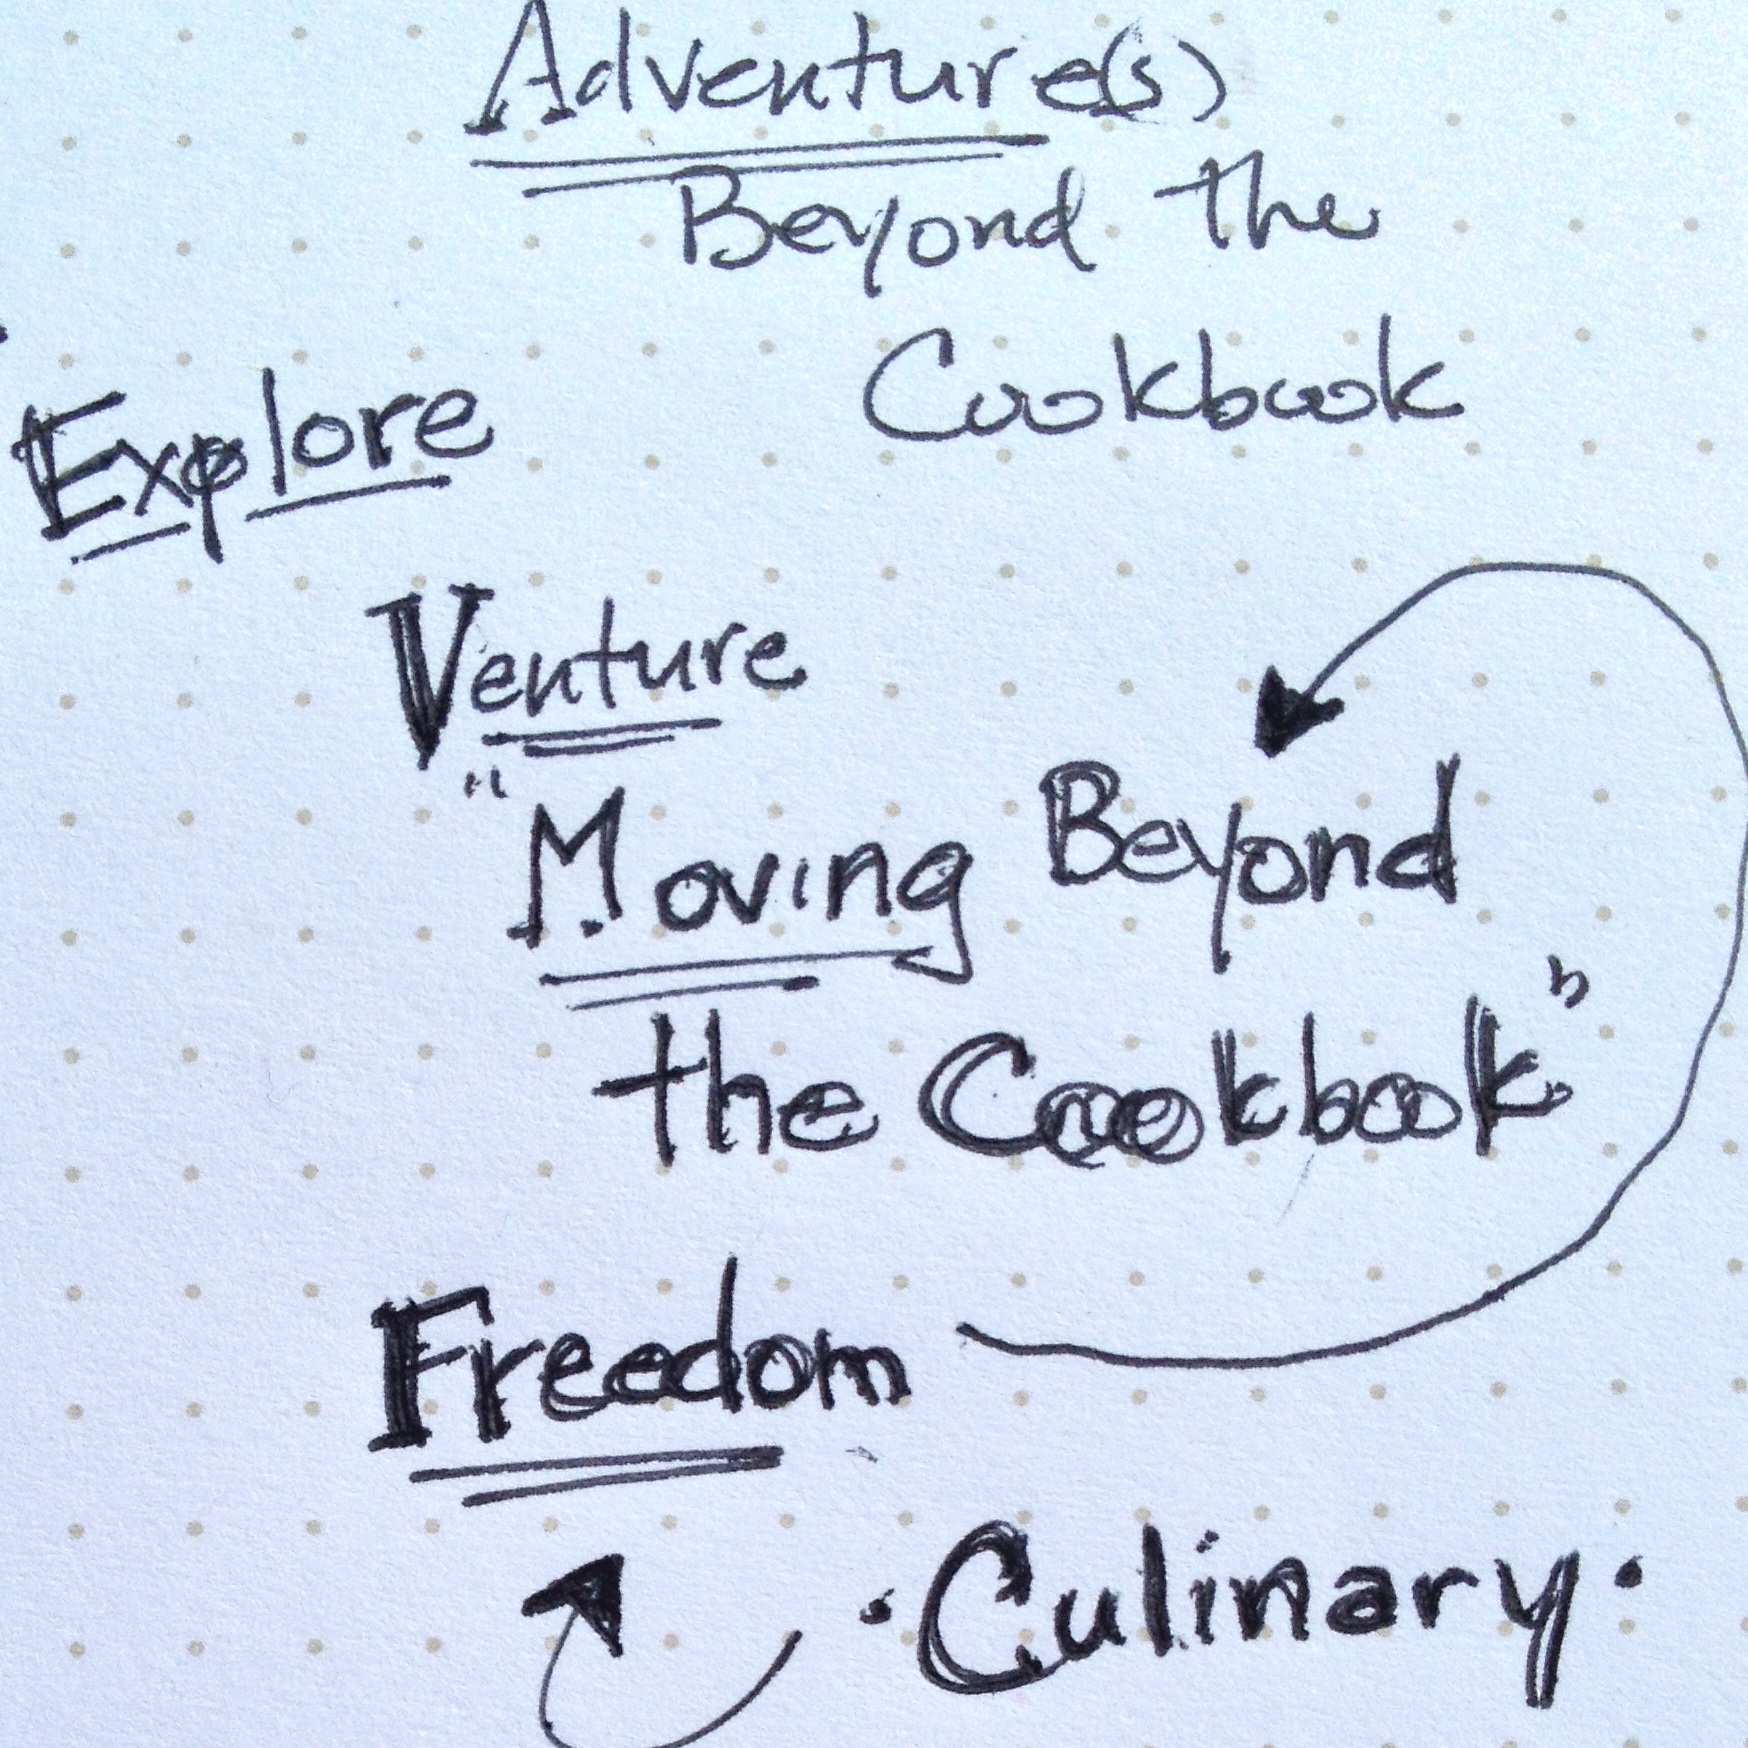 Adventure(s)
Beyond the
Cookbook
Explore
Venture
"Moving Beyond
the Cookbook"
Freedom
· Culinary ·